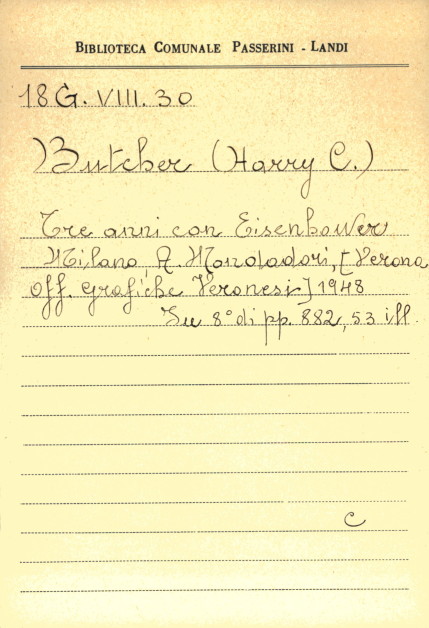 BIBLIOTECA COMUNALE PASSERINI - LANDI
18 G. VIII. 30
Butcher (Harry C.)
Tre anni con Eisenhower
Milano, A. Mondadori, [Verona
Off. grafiche Veronesi] 1948
In 8° di pp. 882, 53 ill.
C